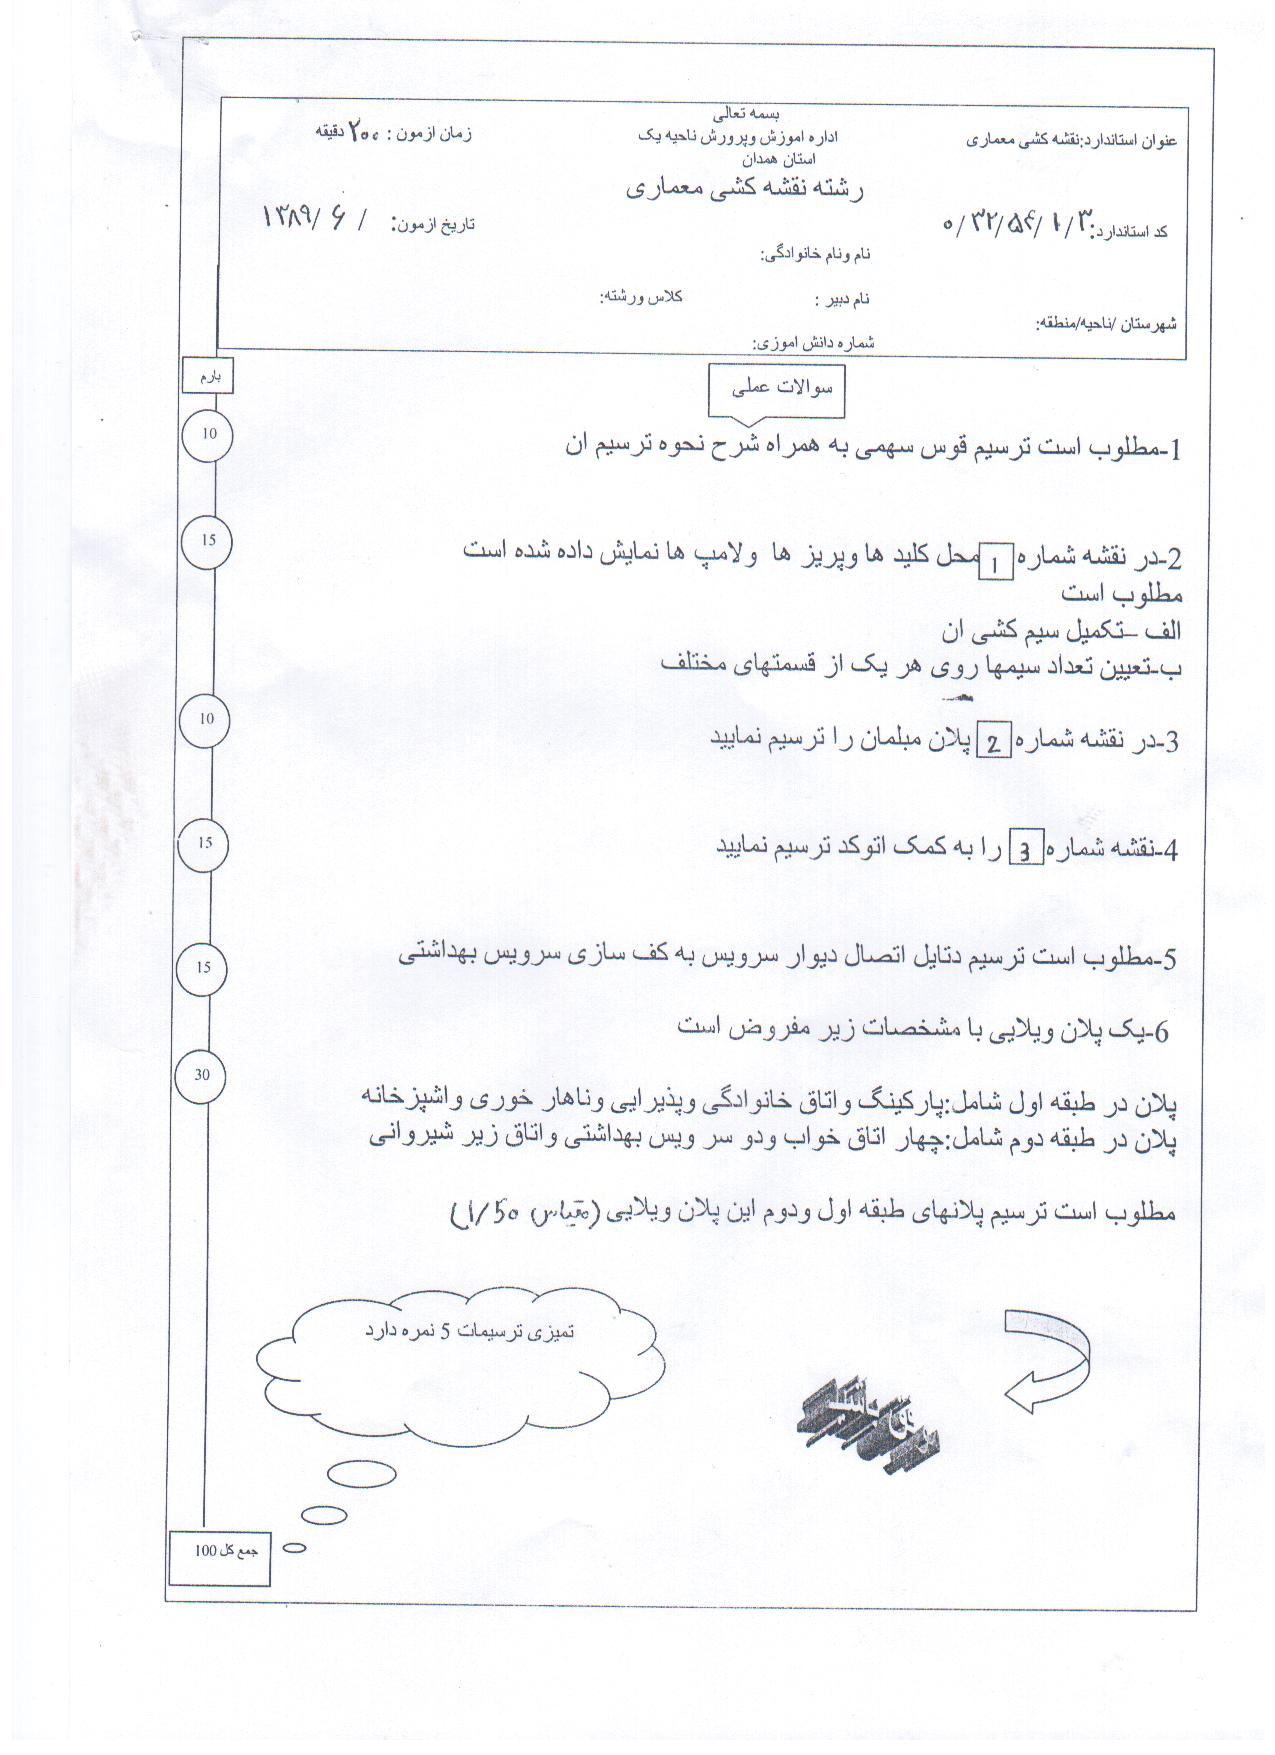 بسمه تعالی
عنوان استاندارد:نقشه کشی معماری
اداره اموزش وپرورش ناحیه یک
زمان ازمون : ۲۰۰ دقیقه
استان همدان
رشته نقشه کشی معماری
کد استاندارد: ۰/۳۲/۵۴/۱/۳
تاریخ ازمون: / ۶ /۱۳۸۹
نام ونام خانوادگی:
نام دبیر :
کلاس ورشته:
شهرستان /ناحیه/منطقه:
شماره دانش اموزی:
بارم
سوالات عملی
1-مطلوب است ترسیم قوس سهمی به همراه شرح نحوه ترسیم ان
10
2-در نقشه شماره 1 محل کلید ها وپریز ها ولامپ ها نمایش داده شده است
15
مطلوب است
الف –تکمیل سیم کشی ان
ب-تعیین تعداد سیمها روی هر یک از قسمتهای مختلف
3-در نقشه شماره 2 پلان مبلمان را ترسیم نمایید
10
4-نقشه شماره 3 را به کمک اتوکد ترسیم نمایید
15
5-مطلوب است ترسیم دتایل اتصال دیوار سرویس به کف سازی سرویس بهداشتی
15
6-یک پلان ویلایی با مشخصات زیر مفروض است
30
پلان در طبقه اول شامل:پارکینگ واتاق خانوادگی وپذیرایی وناهار خوری واشپزخانه
پلان در طبقه دوم شامل:چهار اتاق خواب ودو سر ویس بهداشتی واتاق زیر شیروانی
مطلوب است ترسیم پلانهای طبقه اول ودوم این پلان ویلایی (مقیاس 1/50)
تمیزی ترسیمات 5 نمره دارد
جمع کل 100